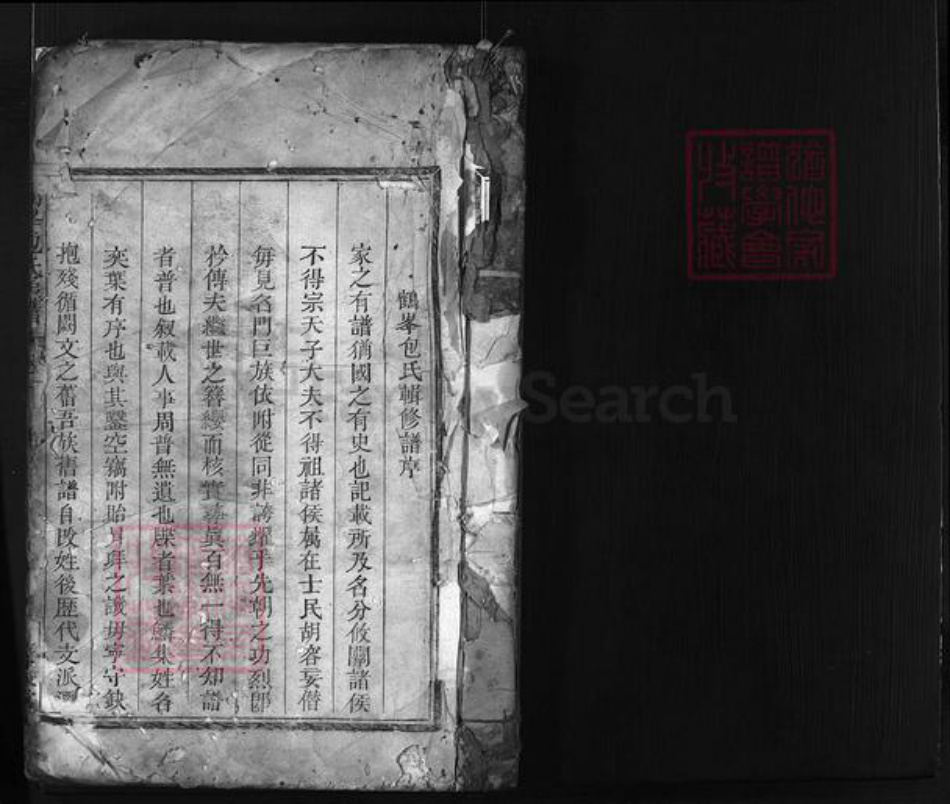 鶴峯包氏輯修譜序
家之有譜猶國之有史也記載所及名分攸關諸侯
不得宗天子大夫不得祖諸侯屬在士民胡容妄僣
每見名門巨族依附從同非誇耀于先朝之功烈卽
矜傳夫繼世之簪纓而核實尋眞百無一得不知譜
者普也叙載人事周普無遺也牒者葉也鱗集姓名
奕葉有序也與其鑿空竊附貽拜之譏毋寧守缺
抱殘循闕文之舊吾族舊譜自改姓後歷代支派
譜學會
收藏
Search